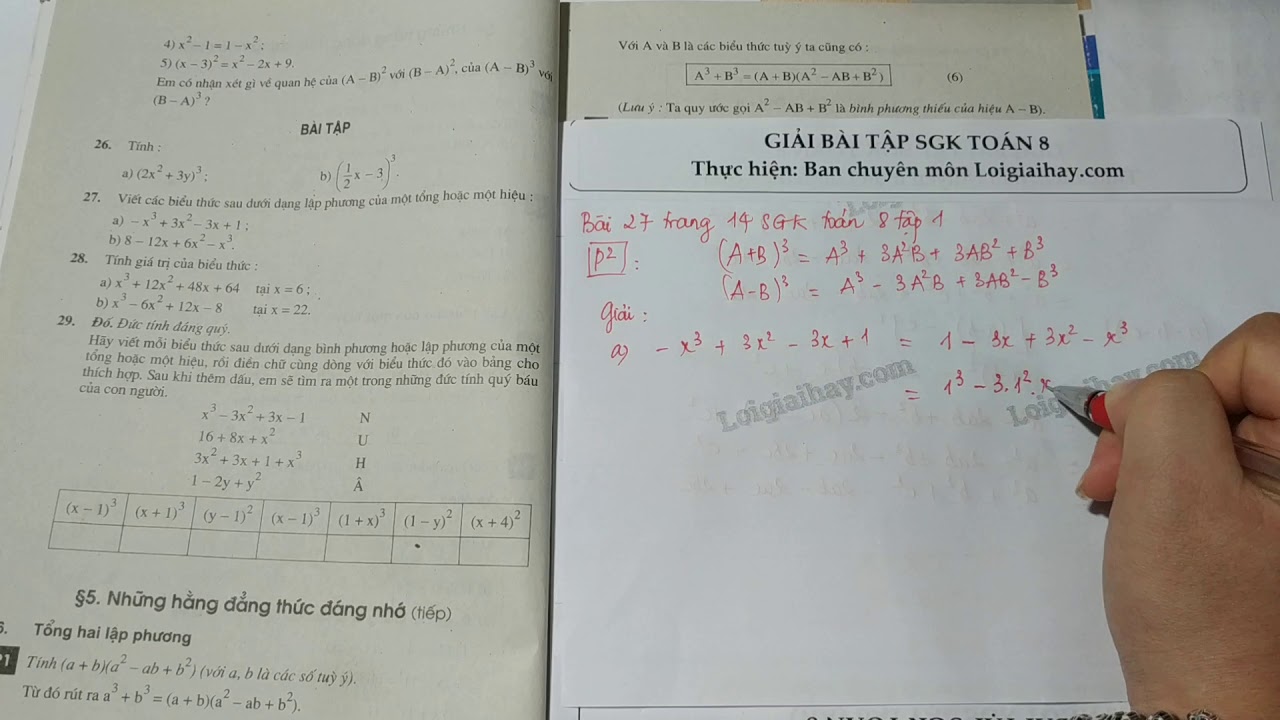 4) x² − 1 = 1 − x² ;
5) (x − 3)² = x² − 2x + 9.
Em có nhận xét gì về quan hệ của (A − B)² với (B − A)², của (A − B)³ với
(B − A)³ ?
BÀI TẬP
26. Tính :
a) (2x² + 3y)³ ; b) (1/2 x − 3)³.
27. Viết các biểu thức sau dưới dạng lập phương của một tổng hoặc một hiệu :
a) − x³ + 3x² − 3x + 1 ;
b) 8 − 12x + 6x² − x³.
28. Tính giá trị của biểu thức :
a) x³ + 12x² + 48x + 64 tại x = 6 ;
b) x³ − 6x² + 12x − 8 tại x = 22.
29. Đố. Đức tính đáng quý.
Hãy viết mỗi biểu thức sau dưới dạng bình phương hoặc lập phương của một
tổng hoặc một hiệu, rồi điền chữ cùng dòng với biểu thức đó vào bảng cho
thích hợp. Sau khi thêm dấu, em sẽ tìm ra một trong những đức tính quý báu
của con người.
x³ − 3x² + 3x − 1 N
16 + 8x + x² U
3x² + 3x + 1 + x³ H
1 − 2y + y² Â
(x − 1)³ (x + 1)³ (y − 1)² (x − 1)³ (1 + x)³ (1 − y)² (x + 4)²
§5. Những hằng đẳng thức đáng nhớ (tiếp)
6. Tổng hai lập phương
?1 Tính (a + b)(a² − ab + b²) (với a, b là các số tuỳ ý).
Từ đó rút ra a³ + b³ = (a + b)(a² − ab + b²).
Với A và B là các biểu thức tuỳ ý ta cũng có :
A³ + B³ = (A + B)(A² − AB + B²) (6)
(Lưu ý : Ta quy ước gọi A² − AB + B² là bình phương thiếu của hiệu A − B).
GIẢI BÀI TẬP SGK TOÁN 8
Thực hiện: Ban chuyên môn Loigiaihay.com
Bài 27 trang 14 SGK toán 8 tập 1
P² : (A+B)³ = A³ + 3A²B + 3AB² + B³
(A-B)³ = A³ - 3A²B + 3AB² - B³
Giải :
a) - x³ + 3x² - 3x + 1 = 1 - 3x + 3x² - x³
= 1³ - 3.1².x
Loigiaihay.com
Loigiaihay.com